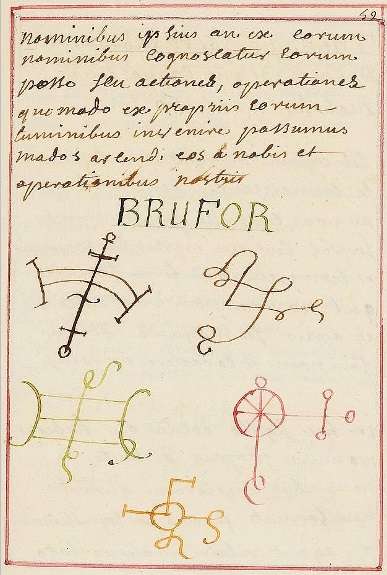 59
nominibus ipsius an ex eorum
nominibus cognoscatur eorum
posso seu actiones, operationes
quomodo ex propriis eorum
luminibus invenire possumus
modos arcendi eos a nobis et
operationibus nostris
BRUFOR